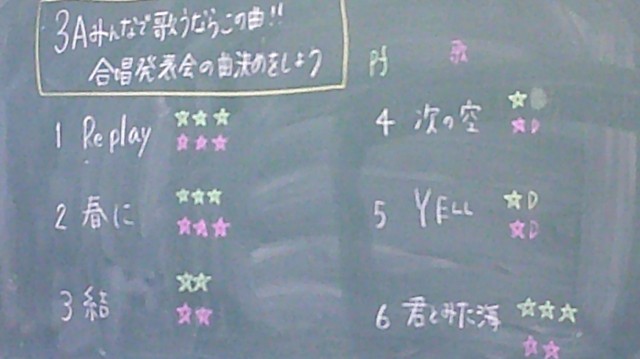 3Aみんなで歌うならこの曲!!
合唱発表会の曲決めをしよう
Pf 歌
1 Replay ☆☆☆
☆☆☆
2 春に ☆☆☆
☆☆☆
3 結 ☆☆
☆☆
4 次の空 ☆
☆D
5 YELL ☆D
☆D
6 君とみた海 ☆☆☆
☆☆